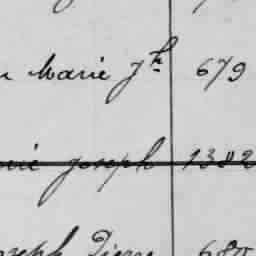 Marie Jh 679
Joseph 1382
Joseph Pierre 680